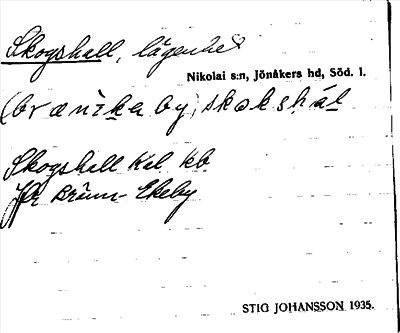 Skogshall, lägenhet
Nikolai s:n, Jönåkers hd, Söd. l.
skəkshál
Skogshall Kal kb
Jfr Bränn-Ekeby
STIG JOHANSSON 1935.